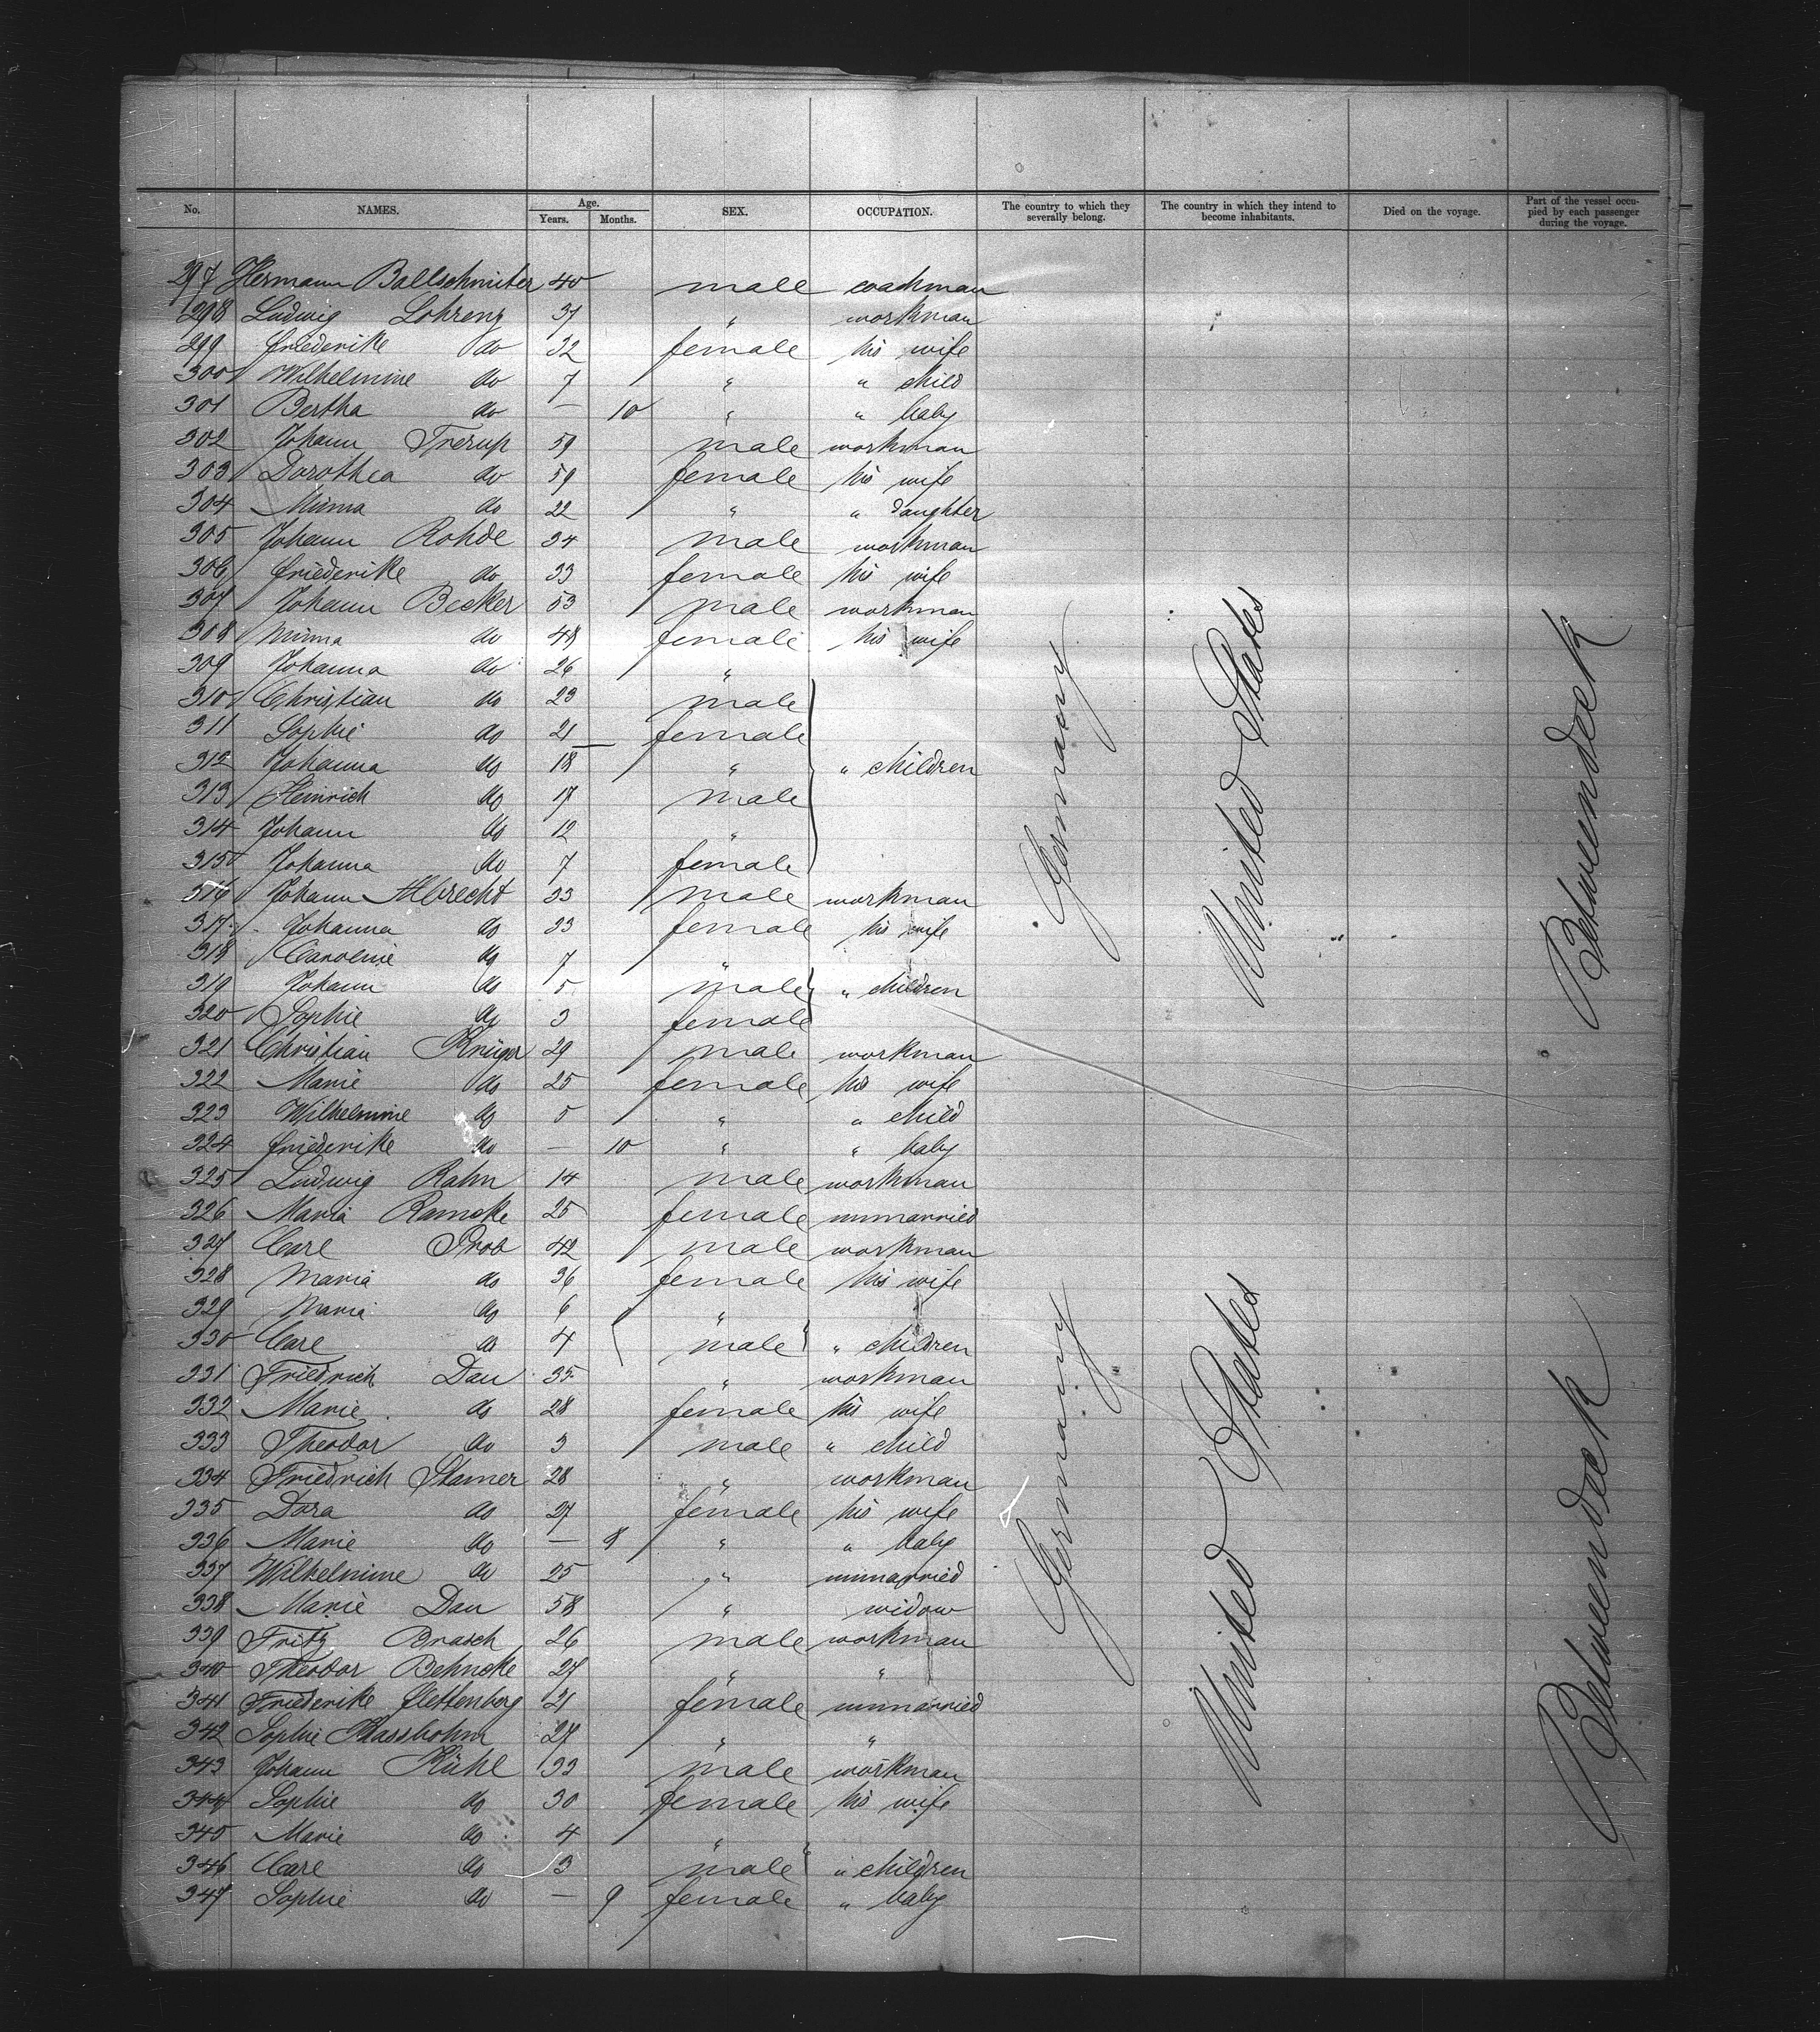 No. NAMES. Age. Years. Months. SEX. OCCUPATION. The country to which they severally belong. The country in which they intend to become inhabitants. Died on the voyage. Part of the vessel occupied by each passenger during the voyage.
297 Hermann Ballschmiter 40 male coachman
298 Ludwig Lohrenz 37 " workman
299 Friederike do 32 female his wife
300 Wilhelmine do 7 " " child
301 Bertha do — 10 " " baby
302 Johann Trerup 59 male workman
303 Dorothea do 59 female his wife
304 Minna do 22 " " daughter
305 Johann Rohde 34 male workman
306 Friederike do 33 female his wife
307 Johann Becker 53 male workman
308 Minna do 48 female his wife
309 Johanna do 26 "
310 Christian do 23 male
311 Sophie do 21 female
312 Johanna do 18 " " children
313 Heinrich do 17 male
314 Johann do 12 "
315 Johanna do 7 female
316 Johann Albrecht 33 male workman
317 Johanna do 33 female his wife
318 Caroline do 7 "
319 Johann do 5 male " children
320 Sophie do 3 female
321 Christian Krüger 29 male workman
322 Marie do 25 female his wife
323 Wilhelmine do 5 " " child
324 Friederike do — 10 " " baby
325 Ludwig Rahn 14 male workman
326 Maria Ramcke 25 female unmarried
327 Carl 42 male workman
328 Maria do 36 female his wife
329 Maria do 6 "
330 Carl do 4 male " children
331 Friedrich Dau 35 " workman
332 Marie do 28 female his wife
333 Theodor do 3 male " child
334 Friedrich Stamer 28 " workman
335 Dora do 27 female his wife
336 Marie do — 8 " " baby
337 Wilhelmine do 25 " unmarried
338 Marie Dau 58 " widow
339 Fritz Brasch 26 male workman
340 Theodor Behncke 27 " "
341 Friederike Plettenberg 21 female unmarried
342 Sophie Kassbohm 27 " "
343 Johann Kühl 33 male workman
344 Sophie do 30 female his wife
345 Marie do 4 "
346 Carl do 3 male " children
347 Sophie do — 9 female " baby
Germany
United States
Betweendeck
Germany
United States
Betweendeck